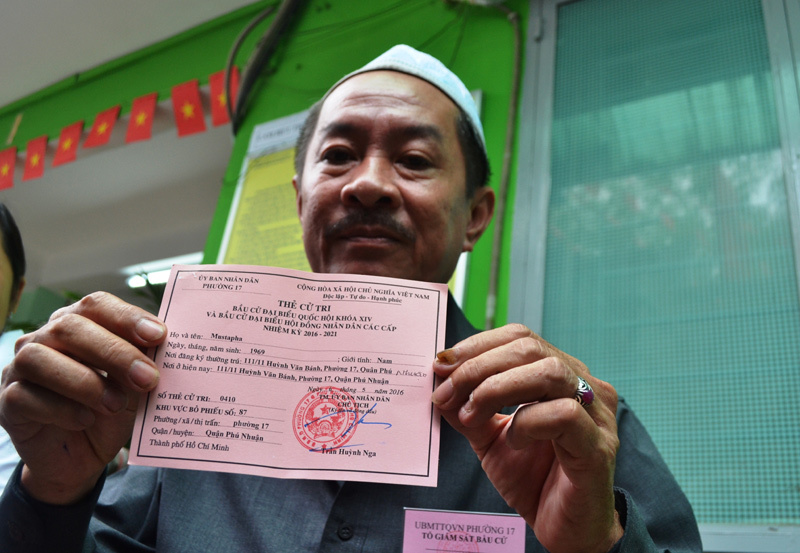 ỦY BAN NHÂN DÂN
PHƯỜNG 17
CỘNG HÒA XÃ HỘI CHỦ NGHĨA VIỆT NAM
Độc lập - Tự do - Hạnh phúc
THẺ CỬ TRI
BẦU CỬ ĐẠI BIỂU QUỐC HỘI KHÓA XIV
VÀ BẦU CỬ ĐẠI BIỂU HỘI ĐỒNG NHÂN DÂN CÁC CẤP
NHIỆM KỲ 2016 - 2021
Họ và tên: Mustapha
Ngày, tháng, năm sinh: 1969 ; Giới tính: Nam
Nơi đăng ký thường trú: 111/11 Huỳnh Văn Bánh, Phường 17, Quận Phú
Nơi ở hiện nay: 111/11 Huỳnh Văn Bánh, Phường 17, Quận Phú Nhuận
Ngày 5 năm 2016
TM. ỦY BAN NHÂN DÂN
CHỦ TỊCH
SỐ THẺ CỬ TRI: 0410
KHU VỰC BỎ PHIẾU SỐ: 87
Phường/xã/thị trấn: phường 17
Quận/huyện: Quận Phú Nhuận
Thành phố Hồ Chí Minh
Trần Huỳnh Nga
UBMTTQVN PHƯỜNG 17
TỔ GIÁM SÁT BẦU CỬ